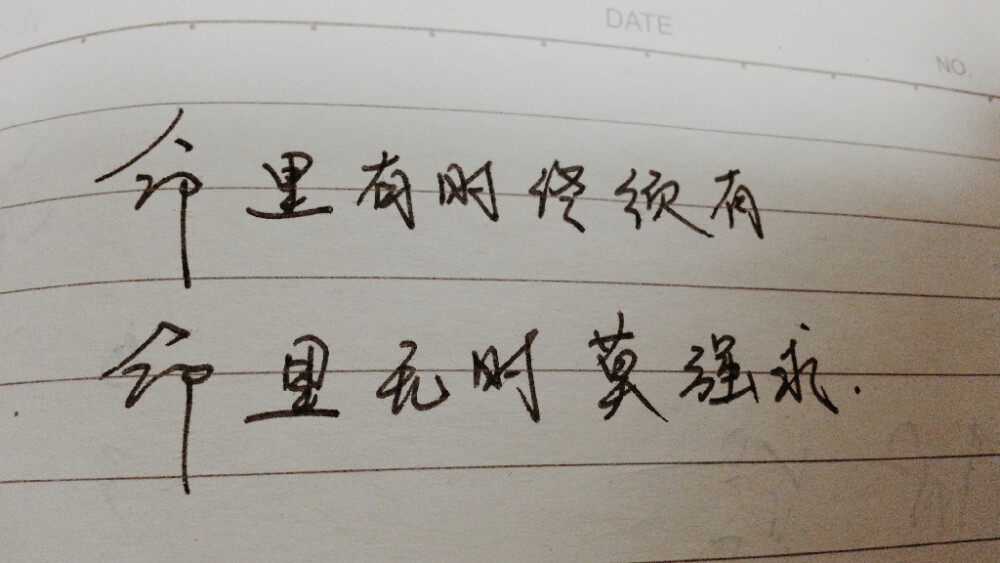 DATE
NO.
命里有时终须有
命里无时莫强求.